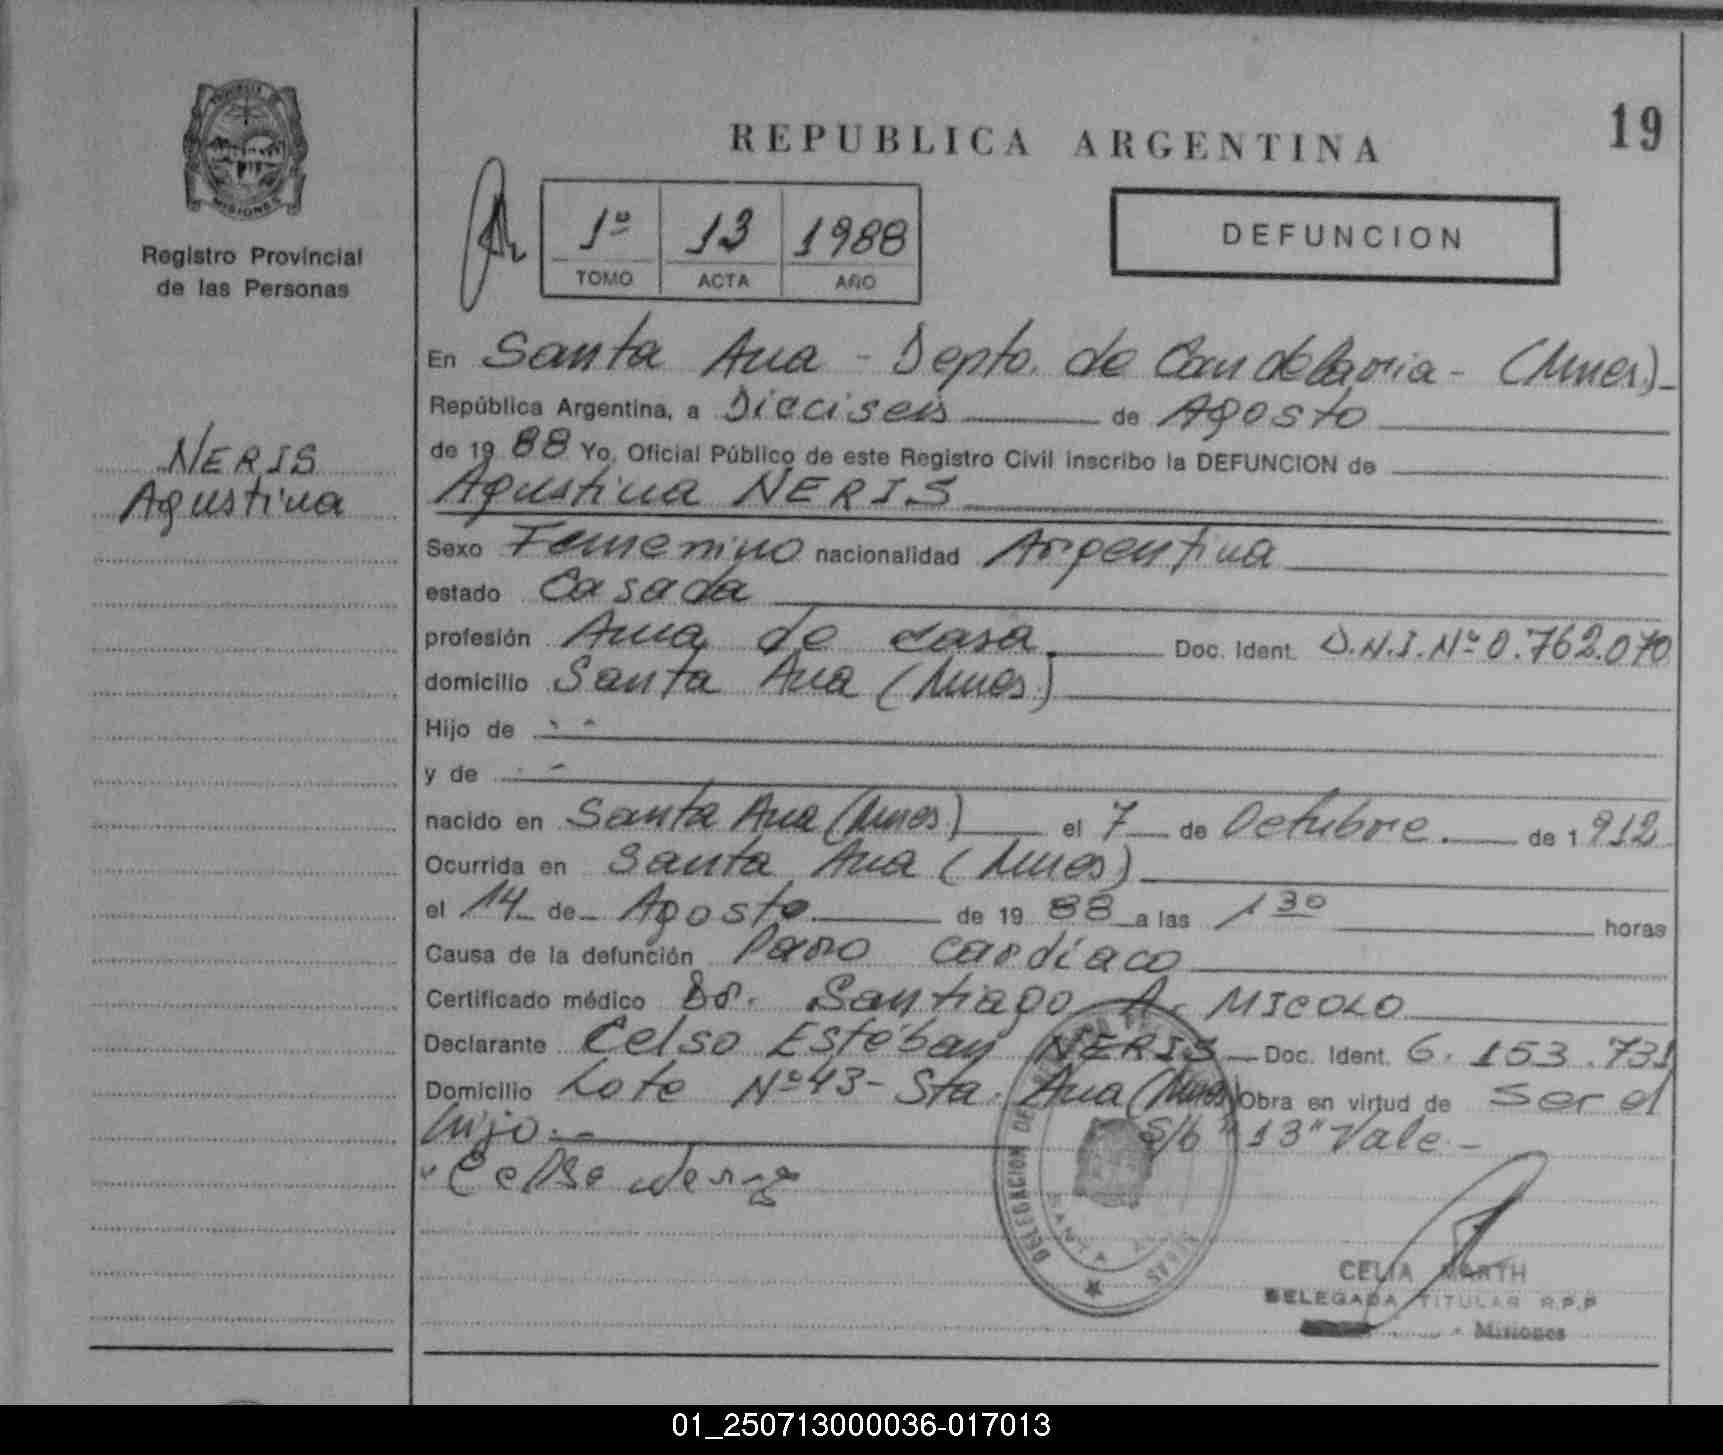 19
REPUBLICA ARGENTINA
PROVINCIA DE
MISIONES
Registro Provincial
de las Personas
1º 13 1988
TOMO ACTA AÑO
DEFUNCION
NERIS
Agustina
En Santa Ana - Depto. de Candelaria - (Mnes.)-
República Argentina, a Dieciseis de Agosto
de 19 88 Yo, Oficial Público de este Registro Civil inscribo la DEFUNCION de
Agustina NERIS
Sexo Femenino nacionalidad Argentina
estado Casada
profesión Ama de casa. Doc. Ident. D.N.I. Nº 0.762.070
domicilio Santa Ana (Mnes.)
Hijo de - -
y de - -
nacido en Santa Ana (Mnes) el 7 de Octubre de 1 912
Ocurrida en Santa Ana (Mnes)
el 14 de Agosto de 19 88 a las 1 30 horas
Causa de la defunción Paro cardíaco
Certificado médico Dr. Santiago A. MICOLO
Declarante Celso Estéban NERIS Doc. Ident. 6.153.731
Domicilio Lote Nº 43 - Sta. Ana (Mnes) Obra en virtud de Ser el
hijo.- S/b "13" Vale -
DELEGACION DEL
SANTA
CELIA MARTH
DELEGADA TITULAR R.P.P
- Misiones
01_250713000036-017013